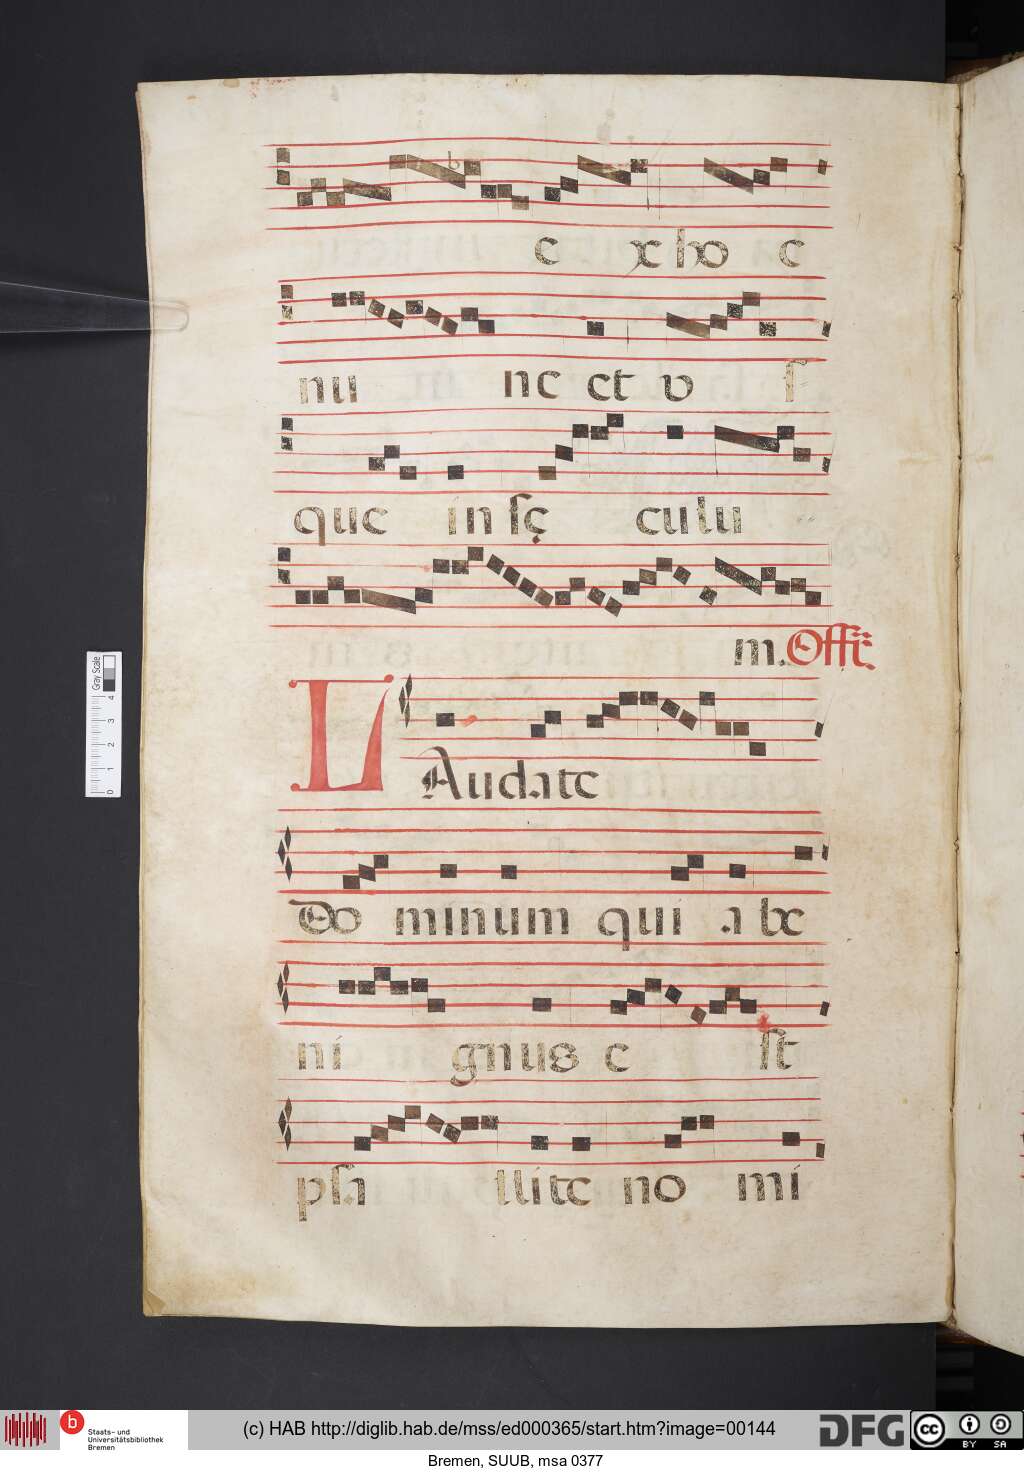 e x ho c
nu nc et v ſ
que in sę culu
m. Offr
LAudate
Do minum qui a be
ni gnus e st
psa llite no mi
Gray Scale
0 1 2 3 4
b Staats- und Universitätsbibliothek Bremen
(c) HAB http://diglib.hab.de/mss/ed000365/start.htm?image=00144
DFG
cc BY SA
Bremen, SUUB, msa 0377